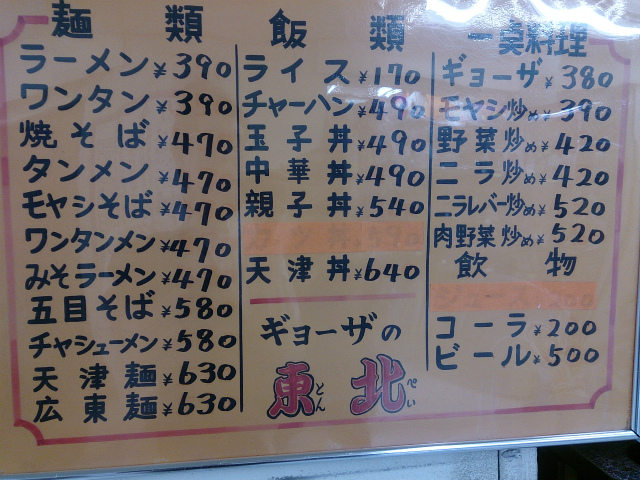 麺類
ラーメン ¥390
ワンタン ¥390
焼そば ¥470
タンメン ¥470
モヤシそば ¥470
ワンタンメン ¥470
みそラーメン ¥470
五目そば ¥580
チャシューメン ¥580
天津麺 ¥630
広東麺 ¥630
飯類
ライス ¥170
チャーハン ¥490
玉子丼 ¥490
中華丼 ¥490
親子丼 ¥540
天津丼 ¥640
ギョーザの
東北
とん ぺい
一品料理
ギョーザ ¥380
モヤシ炒め ¥390
野菜炒め ¥420
ニラ炒め ¥420
ニラレバー炒め ¥520
肉野菜炒め ¥520
飲物
コーラ ¥200
ビール ¥500